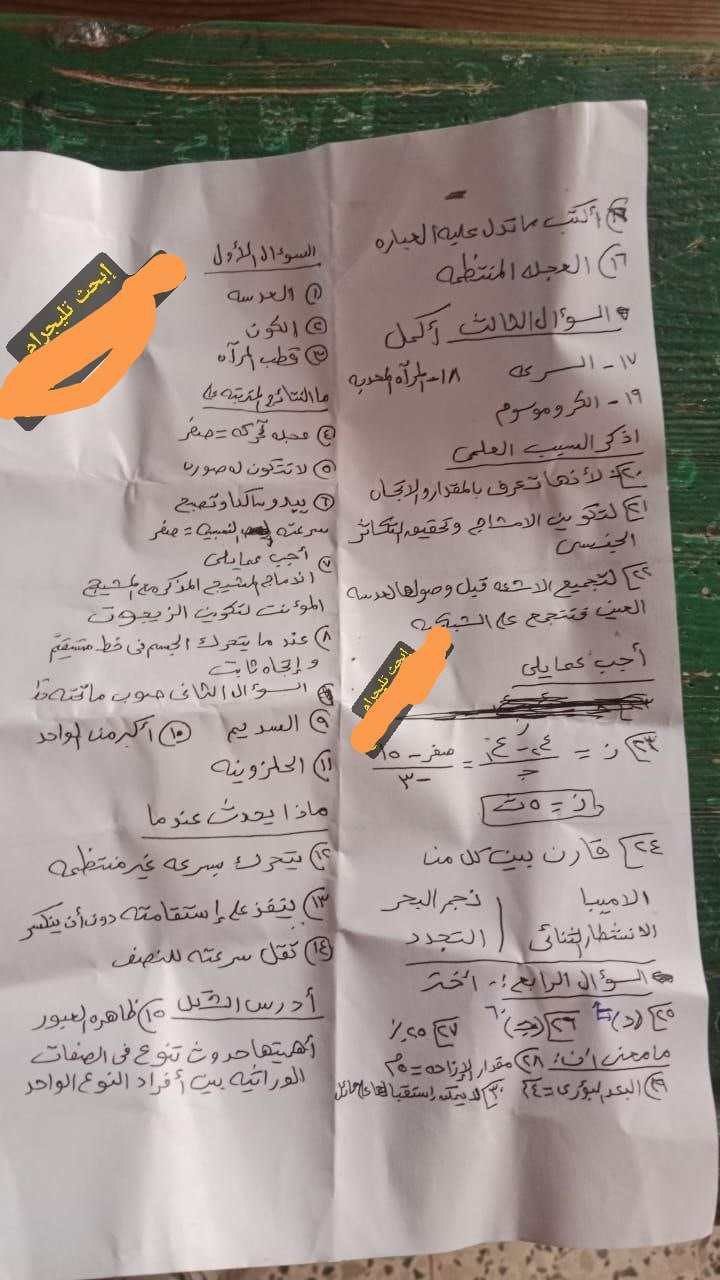 السؤال الأول
① العدسه
② الكون
③ قطب المرآه
ما النتائج المترتبه على
④ عجله تحركه = صفر
⑤ لا تتكون له صوره
⑥ يبدو ساكنا وتصبح
سرعته النسبيه = صفر
أجب عمايلى
⑦ اندماج المشيج المذكر مع المشيج
المؤنث لتكوين الزيجوت
⑧ عندما يتحرك الجسم فى خط مستقيم
و إتجاه ثابت
السؤال الثانى صوب ما تحته خط
⑨ السديم ⑩ أكبر من الواحد
⑪ الحلزونيه
ماذا يحدث عندما
⑫ يتحرك بسرعه غير منتظمه
⑬ ينفذ على إستقامته دون أن ينكسر
⑭ تقل سرعته للنصف
أدرس الشكل ⑮ ظاهره العبور
أهميتها حدوث تنوع فى الصفات
الوراثيه بين أفراد النوع الواحد
أكتب ما تدل عليه العباره
١٦) العجله المنتظمه
السؤال الثالث أكمل
١٧- السرعه ١٨- المرآه المحدبه
١٩- الكروموسوم
اذكر السبب العلمى
٢٠ لأنها تعرف بالمقدار والاتجاه
٢١ لتكوين الامشاج وتحقيق التكاثر
الجنسى
٢٢ لتجميع الاشعه قبل وصولها لعدسه
العين فتتجمع على الشبكيه
أجب عمايلى
٢٣ ز = ع٢ - ع١ / جـ = صفر - ١٥ / -٣
ز = ٥ ث
٢٤ قارن بين كل من
الاميبا نجم البحر
الانشطار الثنائى التجدد
السؤال الرابع :- اختر
٢٥ (د) ٢٦ (جـ) ٦٠ ٢٧ ٢٥٪
ما معنى أن : ٢٨ مقدار الإزاحه = ٥م
٢٩ البعد البؤرى = ٢٤ ٣٠ لا يمكن إستقبالها على حائل
إبحث تليجرام
إبحث تليجرام